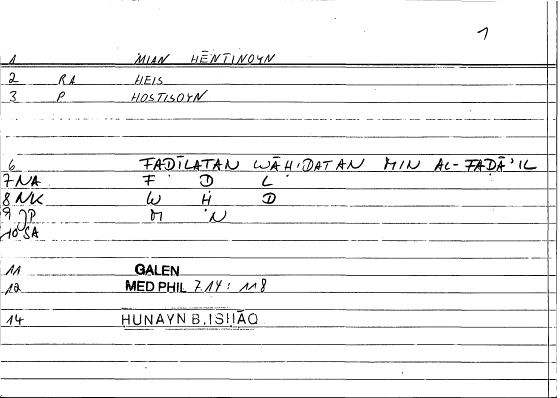 1
1 MIAN HĒNTINOYN
2 RA HEIS
3 P HOSTISOYN
6 FAḌĪLATAN WĀḤIDATAN MIN AL-FAḌĀʾIL
7 NA F Ḍ L
8 NK W Ḥ D
9 JP M N
10 SA
11 GALEN
12 MED PHIL 7.14: 118
14 ḤUNAYN B. ISḤĀQ